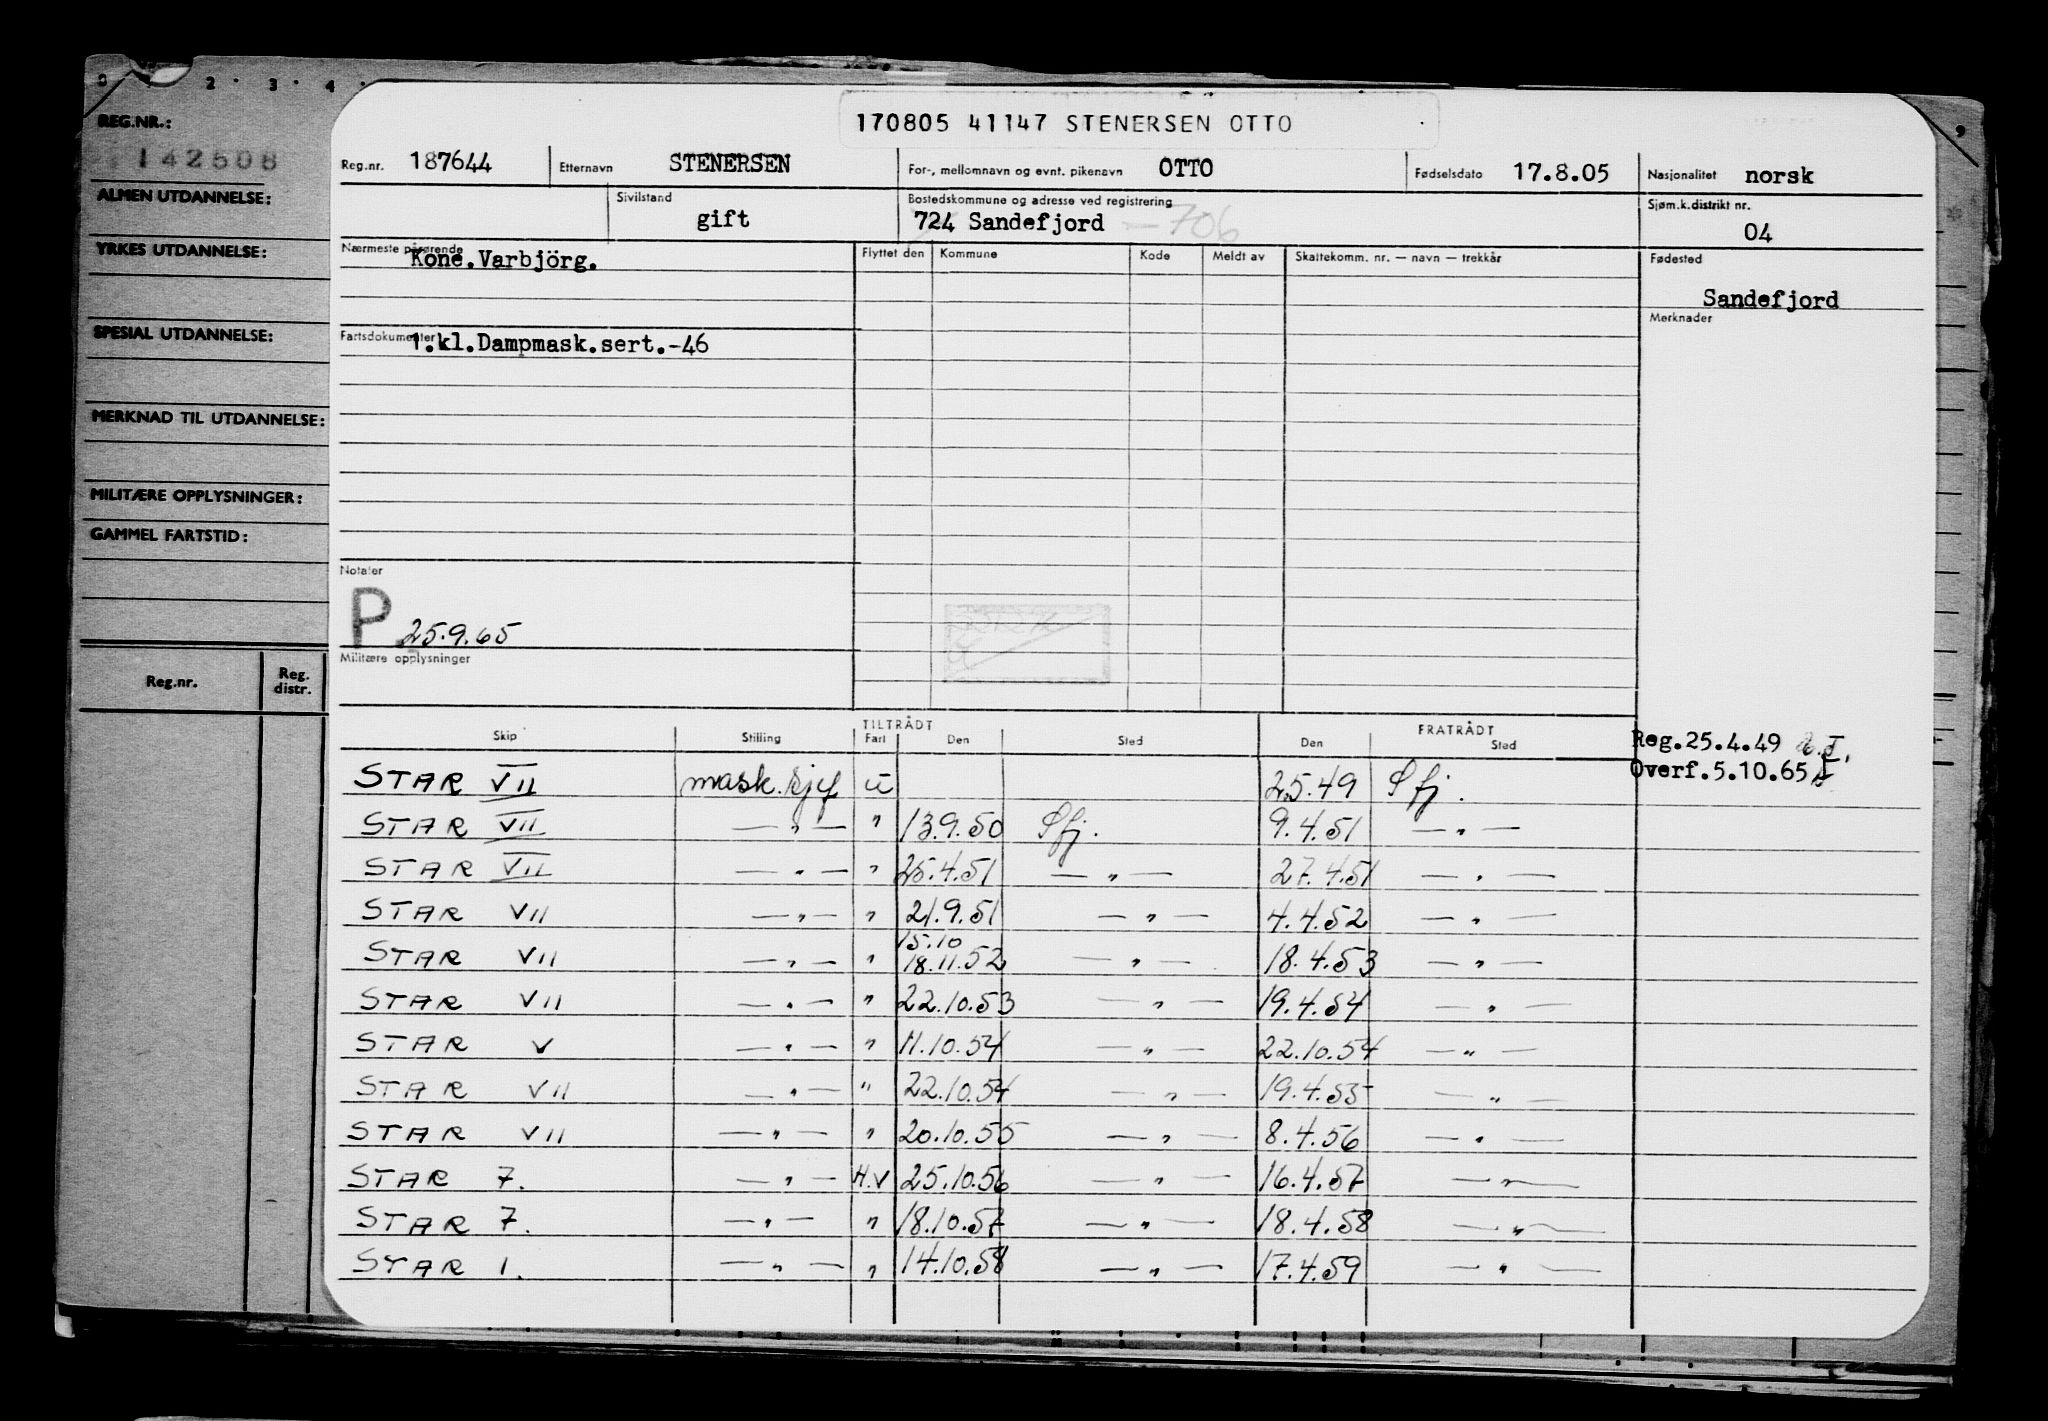 0 2 · 3 · 4 ·
9
REG.NR.:
142508
ALMEN UTDANNELSE:
YRKES UTDANNELSE:
SPESIAL UTDANNELSE:
MERKNAD TIL UTDANNELSE:
MILITÆRE OPPLYSNINGER:
GAMMEL FARTSTID:
Reg.nr. Reg. distr.
170805 41147 STENERSEN OTTO
Reg.nr. 187644 Etternavn STENERSEN For-, mellomnavn og evnt. pikenavn OTTO Fødselsdato 17.8.05 Nasjonalitet norsk
Sivilstand gift Bostedskommune og adresse ved registrering 724 Sandefjord — 706 Sjøm.k.distrikt nr. 04
Nærmeste pårørende Kone.Varbjörg. Flyttet den Kommune Kode Meldt av Skattekomm. nr. — navn — trekkår Fødested
Sandefjord
Merknader
Fartsdokumenter 1.kl.Dampmask.sert.-46
Notater
P 25.9.65
Militære opplysninger
TILTRÅDT FRATRÅDT
Skip Stilling Fart Den Sted Den Sted
Reg.25.4.49
Overf.5.10.65
STAR VII mask.sjef u 2.5.49 Sfj.
STAR VII — " — " 13.9.50 Sfj. 9.4.51 — " —
STAR VII — " — " 25.4.51 — " — 27.4.51 — " —
STAR VII — " — " 21.9.51 — " — 4.4.52 — " —
15.10
STAR VII — " — " 18.11.52 — " — 18.4.53 — " —
STAR VII — " — " 22.10.53 — " — 19.4.54 — " —
STAR V — " — " 11.10.54 — " — 22.10.54 — " —
STAR VII — " — " 22.10.54 — " — 19.4.55 — " —
STAR VII — " — " 20.10.55 — " — 8.4.56 — " —
STAR 7. — " — H.V 25.10.56 — " — 16.4.57 — " —
STAR 7. — " — " 18.10.57 — " — 18.4.58 — " —
STAR 1. — " — " 14.10.58 — " — 17.4.59 — " —